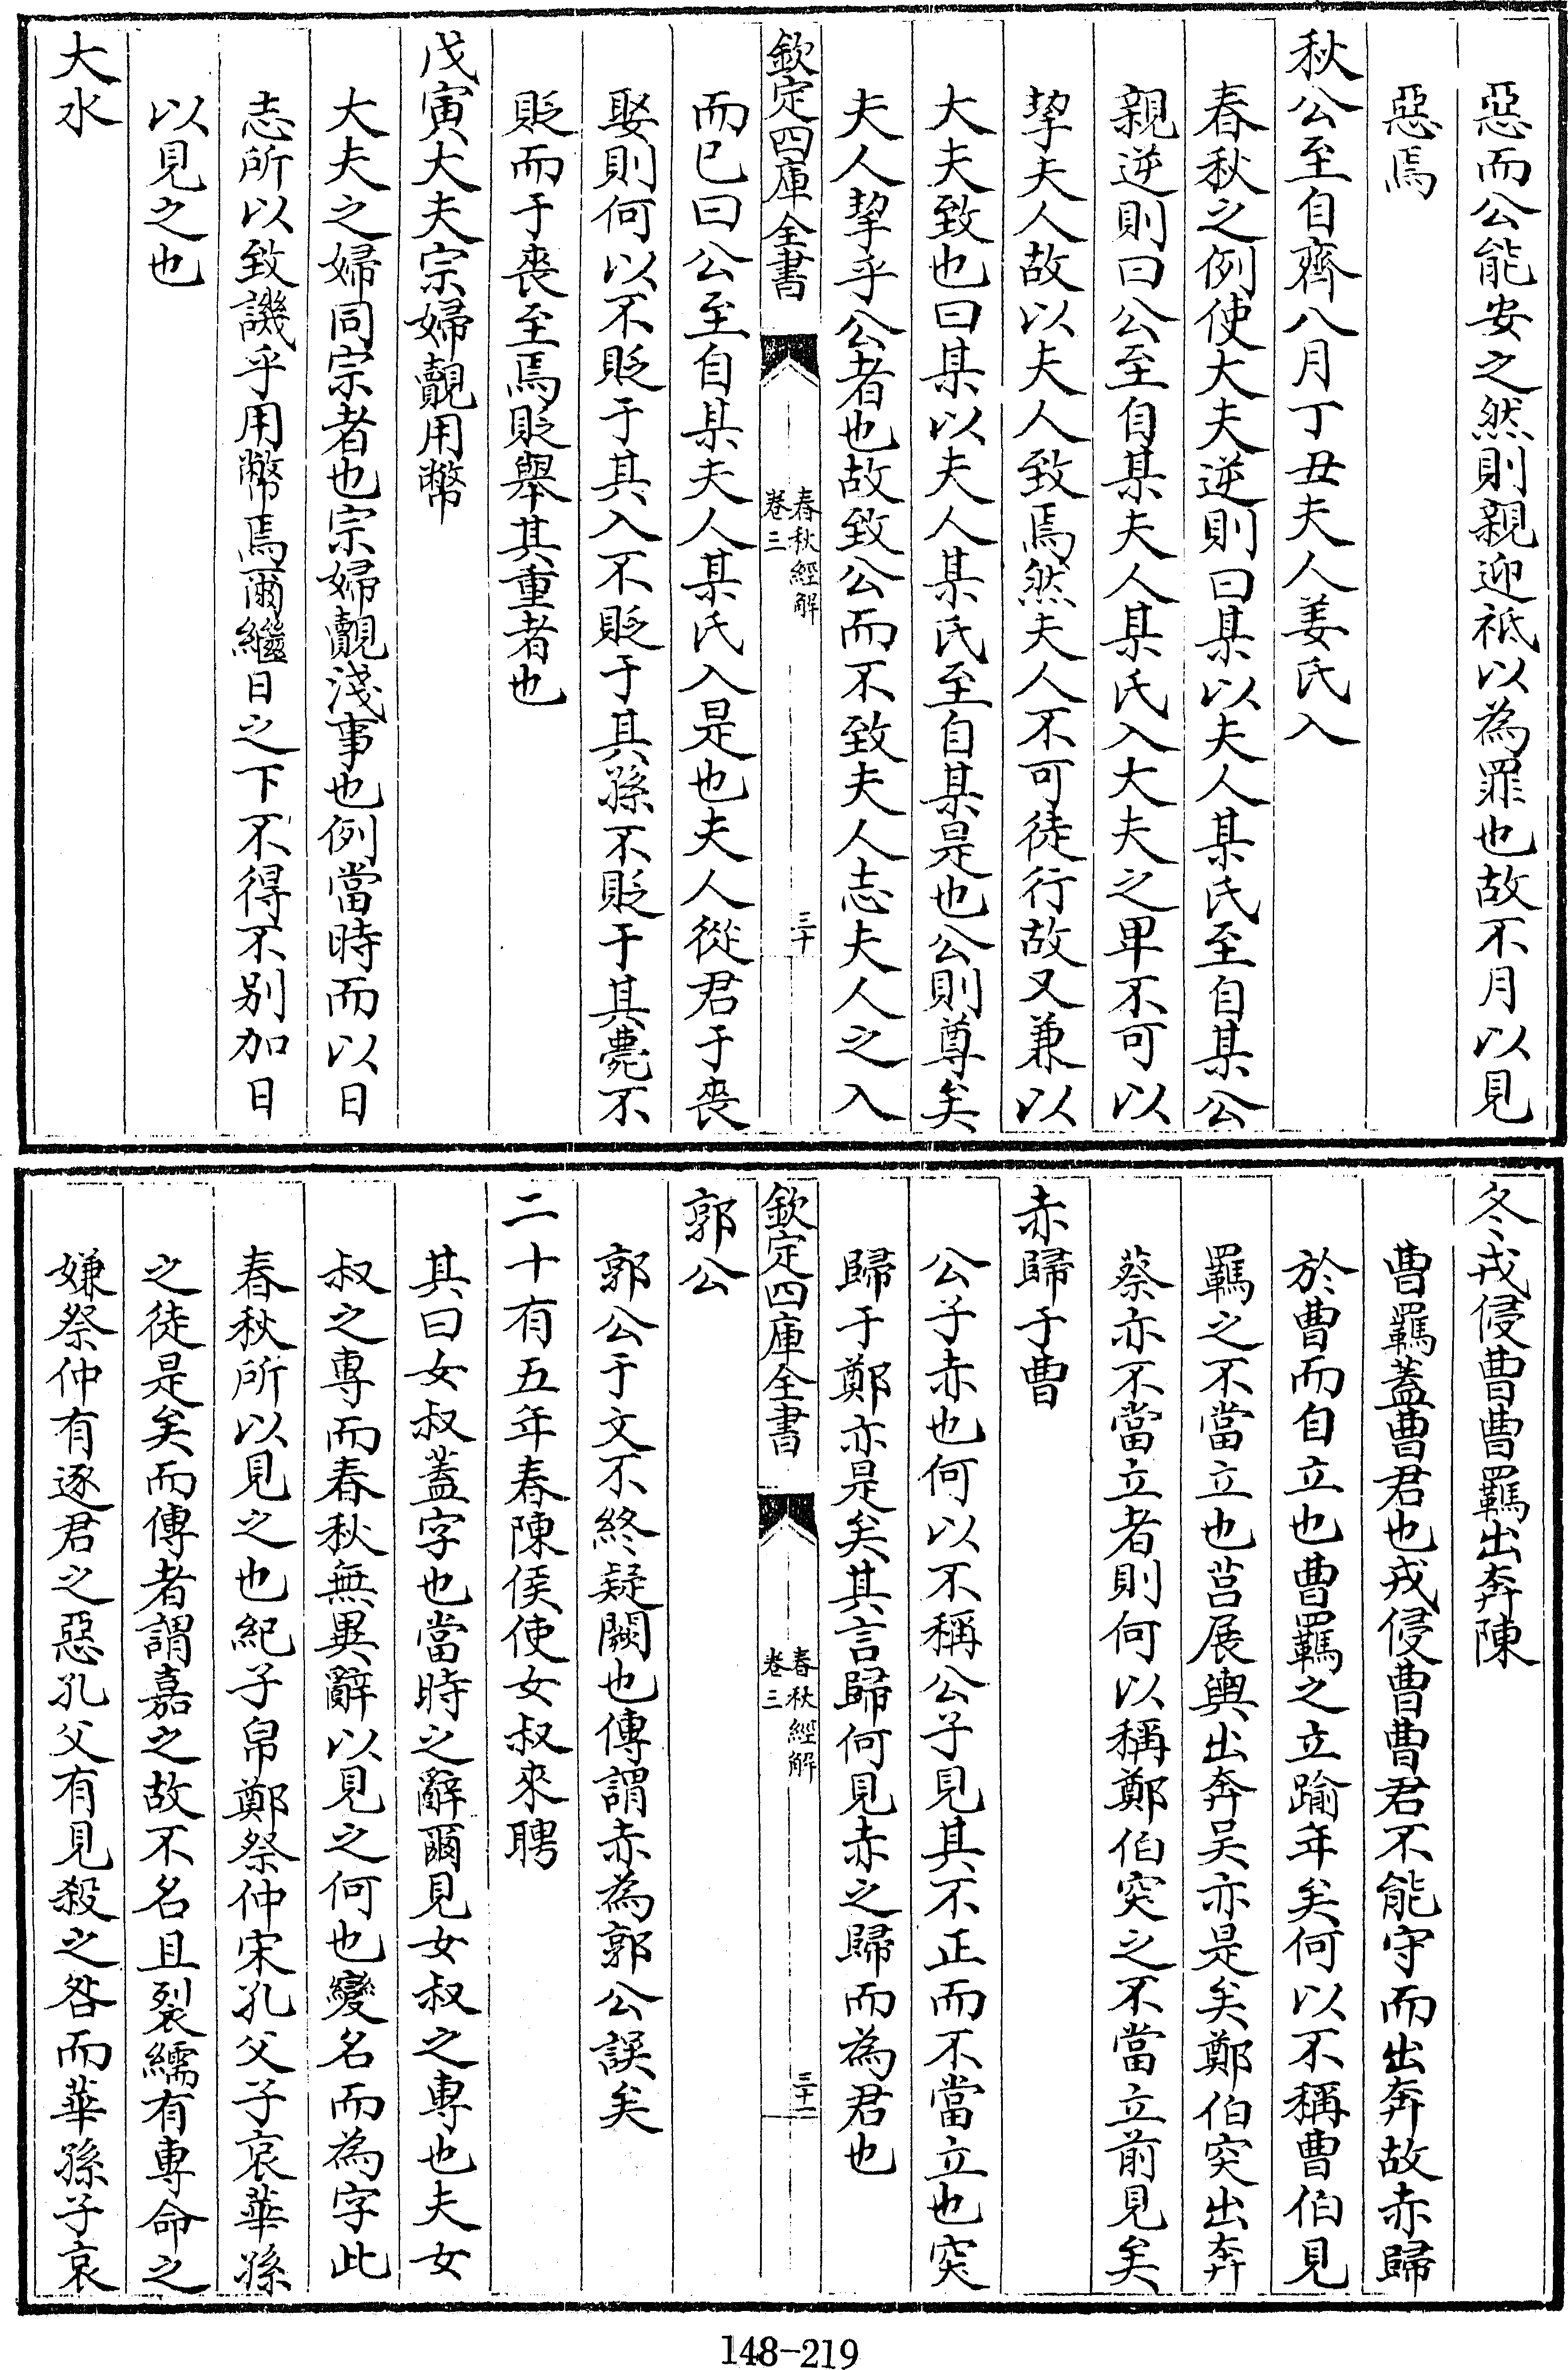 惡而公能安之然則親迎祇以為罪也故不月以見
惡焉
秋公至自齊八月丁丑夫人姜氏入
春秋之例使大夫逆則曰某以夫人某氏至自某公
親逆則曰公至自某夫人某氏入大夫之卑不可以
挈夫人故以夫人致焉然夫人不可徒行故又兼以
大夫致也曰某以夫人某氏至自某是也公則尊矣
夫人挈乎公者也故致公而不致夫人志夫人之入
欽定四庫全書
春秋經解
卷三
三十
而已曰公至自某夫人某氏入是也夫人從君于喪
娶則何以不貶于其入不貶于其孫不貶于其薨不
貶而于喪至焉貶舉其重者也
戊寅大夫宗婦覿用幣
大夫之婦同宗者也宗婦覿淺事也例當時而以日
志所以致譏乎用幣焉爾繼日之下不得不別加日
以見之也
大水
冬戎侵曹曹羈出奔陳
曹羈蓋曹君也戎侵曹曹君不能守而出奔故赤歸
於曹而自立也曹羈之立踰年矣何以不稱曹伯見
羈之不當立也莒展輿出奔吴亦是矣鄭伯突出奔
蔡亦不當立者則何以稱鄭伯突之不當立前見矣
赤歸于曹
公子赤也何以不稱公子見其不正而不當立也突
歸于鄭亦是矣其言歸何見赤之歸而為君也
欽定四庫全書
春秋經解
卷三
三十一
郭公
郭公于文不終疑闕也傳謂赤為郭公誤矣
二十有五年春陳侯使女叔來聘
其曰女叔蓋字也當時之辭爾見女叔之專也夫女
叔之專而春秋無異辭以見之何也變名而為字此
春秋所以見之也紀子帛鄭祭仲宋孔父子哀華孫
之徒是矣而傳者謂嘉之故不名且裂繻有專命之
嫌祭仲有逐君之惡孔父有見殺之咎而華孫子哀
148-219